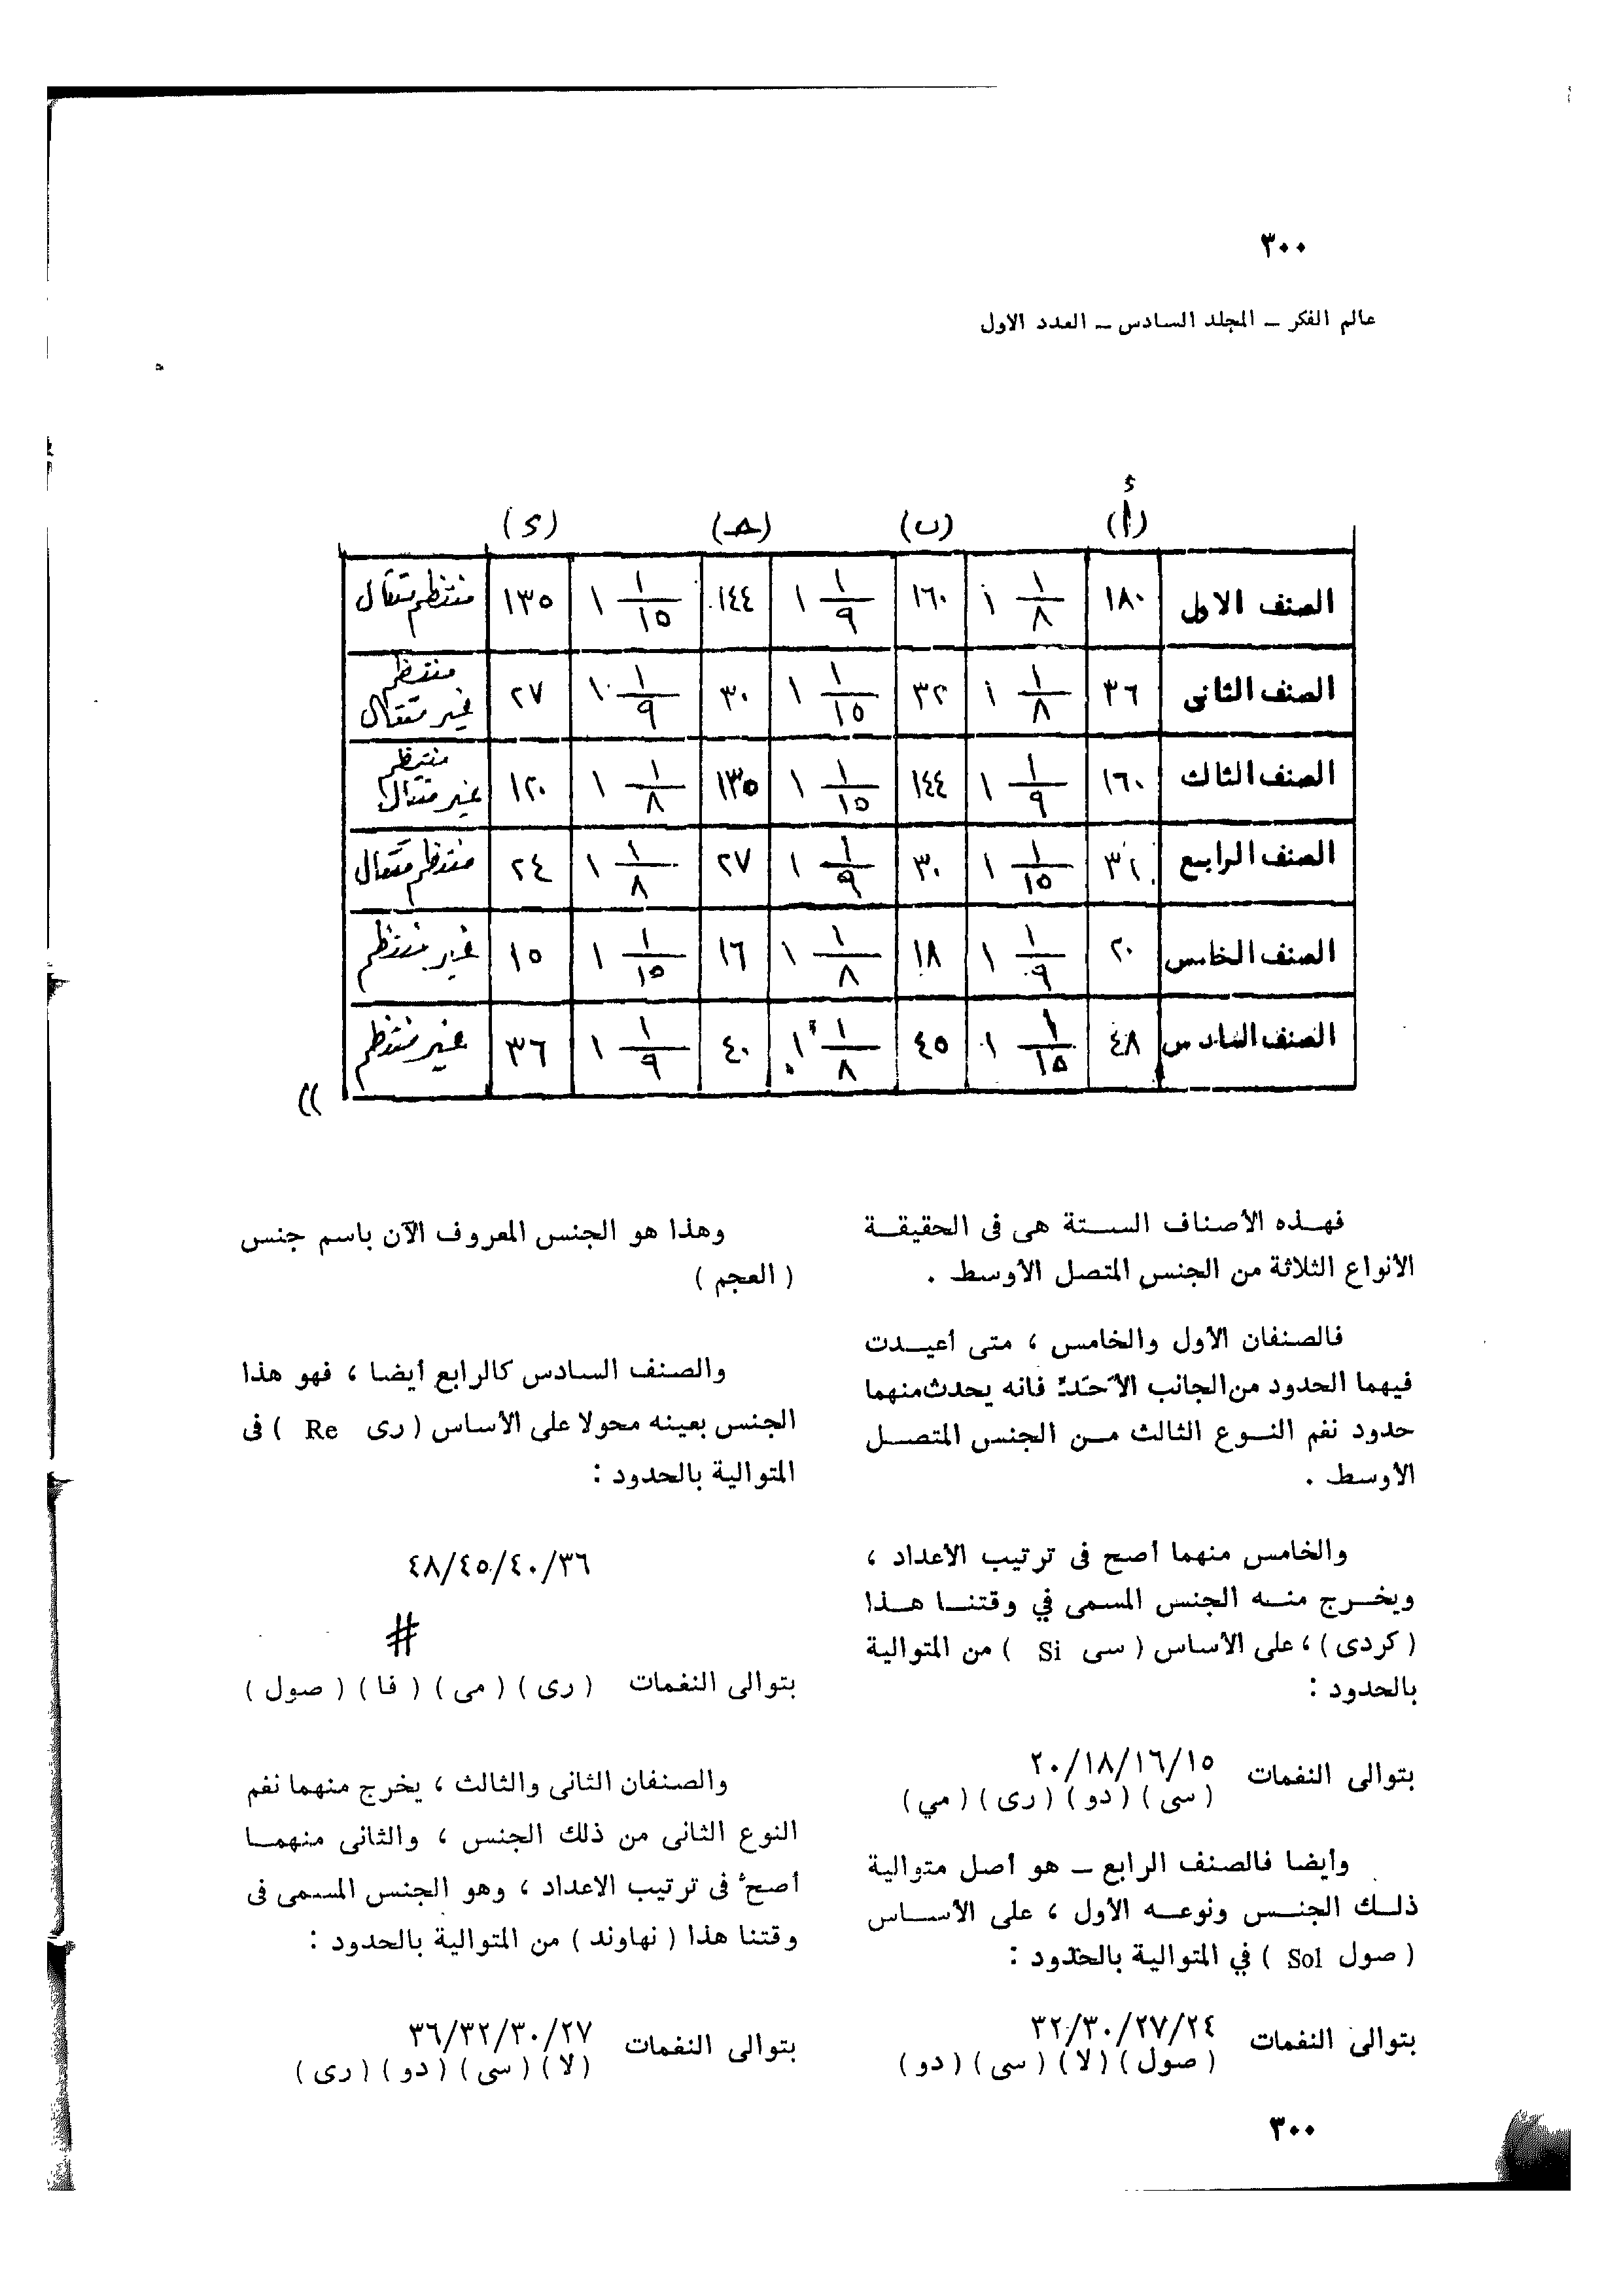 ٣٠٠
عالم الفكر – المجلد السادس – العدد الاول
(أ) (ب) (ج) (د)
الصنف الاول ١٨٠ ١ ١/٨ ١٦٠ ١ ١/٩ ١٤٤ ١ ١/١٥ ١٣٥ منتظم متتال
الصنف الثانى ٣٦ ١ ١/٨ ٣٢ ١ ١/١٥ ٣٠ ١ ١/٩ ٢٧ منتظم غير متتال
الصنف الثالث ١٦٠ ١ ١/٩ ١٤٤ ١ ١/١٥ ١٣٥ ١ ١/٨ ١٢٠ منتظم غير متتال
الصنف الرابع ٣٢ ١ ١/١٥ ٣٠ ١ ١/٩ ٢٧ ١ ١/٨ ٢٤ منتظم متتال
الصنف الخامس ٢٠ ١ ١/٩ ١٨ ١ ١/٨ ١٦ ١ ١/١٥ ١٥ غير منتظم
الصنف السادس ٤٨ ١ ١/١٥ ٤٥ ١ ١/٨ ٤٠ ١ ١/٩ ٣٦ غير منتظم
((
فهذه الأصناف الستة هى فى الحقيقة
الأنواع الثلاثة من الجنس المتصل الأوسط .
فالصنفان الأول والخامس ، متى أعيدت
فيهما الحدود من الجانب الأحَدّ فانه يحدث منهما
حدود نغم النوع الثالث من الجنس المتصل
الأوسط .
والخامس منهما أصح فى ترتيب الأعداد ،
ويخرج منه الجنس المسمى في وقتنا هذا
( كردى ) ، على الأساس ( سى Si ) من المتوالية
بالحدود :
١٥/١٦/١٨/٢٠
بتوالى النغمات
( سى ) ( دو ) ( رى ) ( مي )
وأيضا فالصنف الرابع – هو أصل متوالية
ذلك الجنس ونوعه الأول ، على الأساس
( صول Sol ) في المتوالية بالحدود :
٢٤/٢٧/٣٠/٣٢
بتوالى النغمات
( صول ) ( لا ) ( سى ) ( دو )
وهذا هو الجنس المعروف الآن باسم جنس
( العجم )
والصنف السادس كالرابع أيضا ، فهو هذا
الجنس بعينه محولا على الأساس ( رى Re ) فى
المتوالية بالحدود :
٣٦/٤٠/٤٥/٤٨
#
بتوالى النغمات ( رى ) ( مى ) ( فا ) ( صول )
والصنفان الثانى والثالث ، يخرج منهما نغم
النوع الثانى من ذلك الجنس ، والثانى منهما
أصح فى ترتيب الاعداد ، وهو الجنس المسمى فى
وقتنا هذا ( نهاوند ) من المتوالية بالحدود :
٢٧/٣٠/٣٢/٣٦
بتوالى النغمات
( لا ) ( سى ) ( دو ) ( رى )
٣٠٠